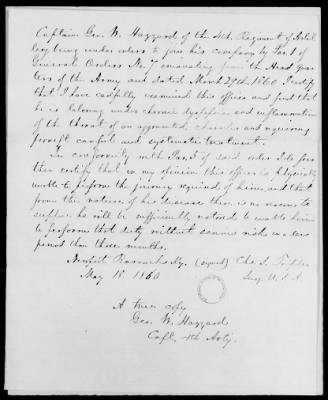 Captain Geo. W. Hazzard of the 4th Regiment of Artil
lery being under orders to join his company by Par. 1 of
General Orders No. 7 emanating from the Head Quar
ters of the Army and dated March 29th 1860. I certify
that I have carefully examined this officer and find that
he is laboring under chronic dyspepsia and inflammation
of the throat of an aggravated character and requiring
prompt careful and systematic treatment.
In conformity with Par. 5 of said order I do fur
ther certify that in my opinion this officer is physically
unable to perform the journey required of him and that
from the nature of his disease there is no reason to
suppose he will be sufficiently restored to enable him
to perform that duty without serious risk in a less
period than three months.
Newport Barracks Ky. (signed) Chs. S. Tripler
May 18 1860 Surg U.S.A.
A true copy
Geo. W. Hazzard
Capt. 4th Arty.